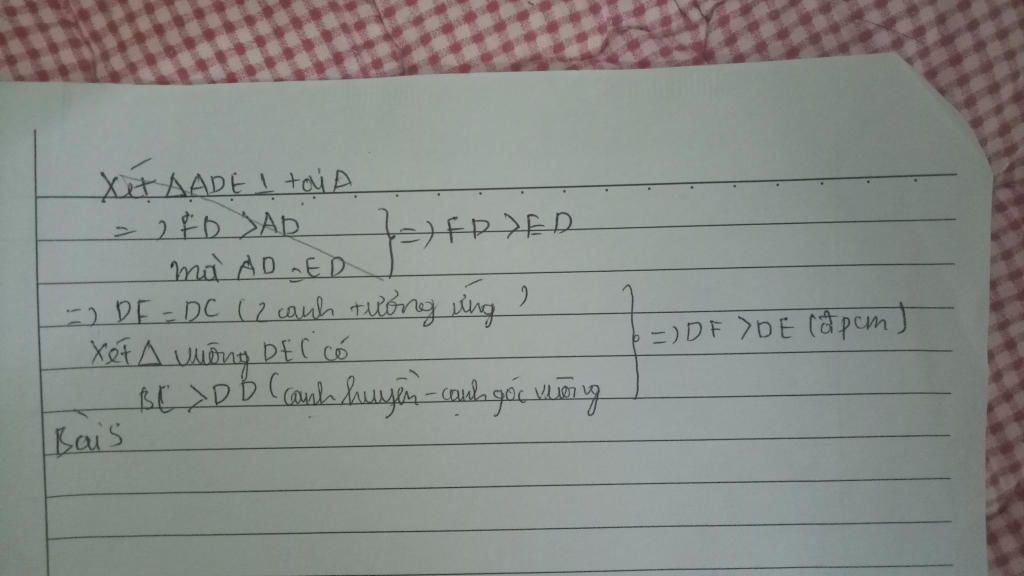 Xét ΔADE ⊥ tại A
=) FD >AD
mà AD = ED } =) FD >ED
=) DF = DC (2 cạnh tưởng ứng)
Xét Δ vuông DEC có
BC > DD (cạnh huyền - cạnh góc vuông } =) DF >DE (đpcm)
Bài 5